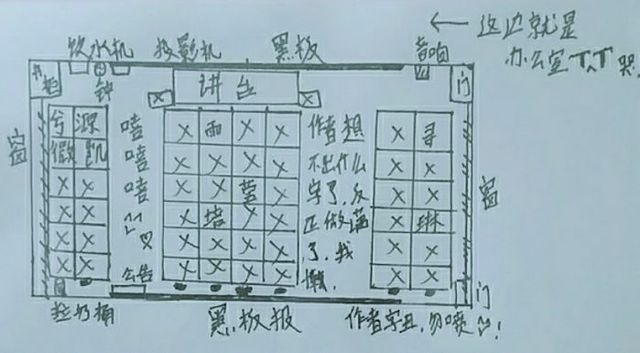 ← 这边就是
办公室T^T哭
饮水机 投影机 黑板 音响
书柜 钟 讲台 门
窗
兮 源 嘻 × 雨 × × 作者想 × 寻
微 凯 嘻 × × × × 不出什么 × ×
× × 嘻 × × 莹 × 字了,反 × ×
× × × 培 × × 正做满 × 琳
× × × × × × 了,我 × ×
× × 公告 × × × × 懒. × ×
窗
门
垃圾桶 黑板报 作者字丑,勿喷